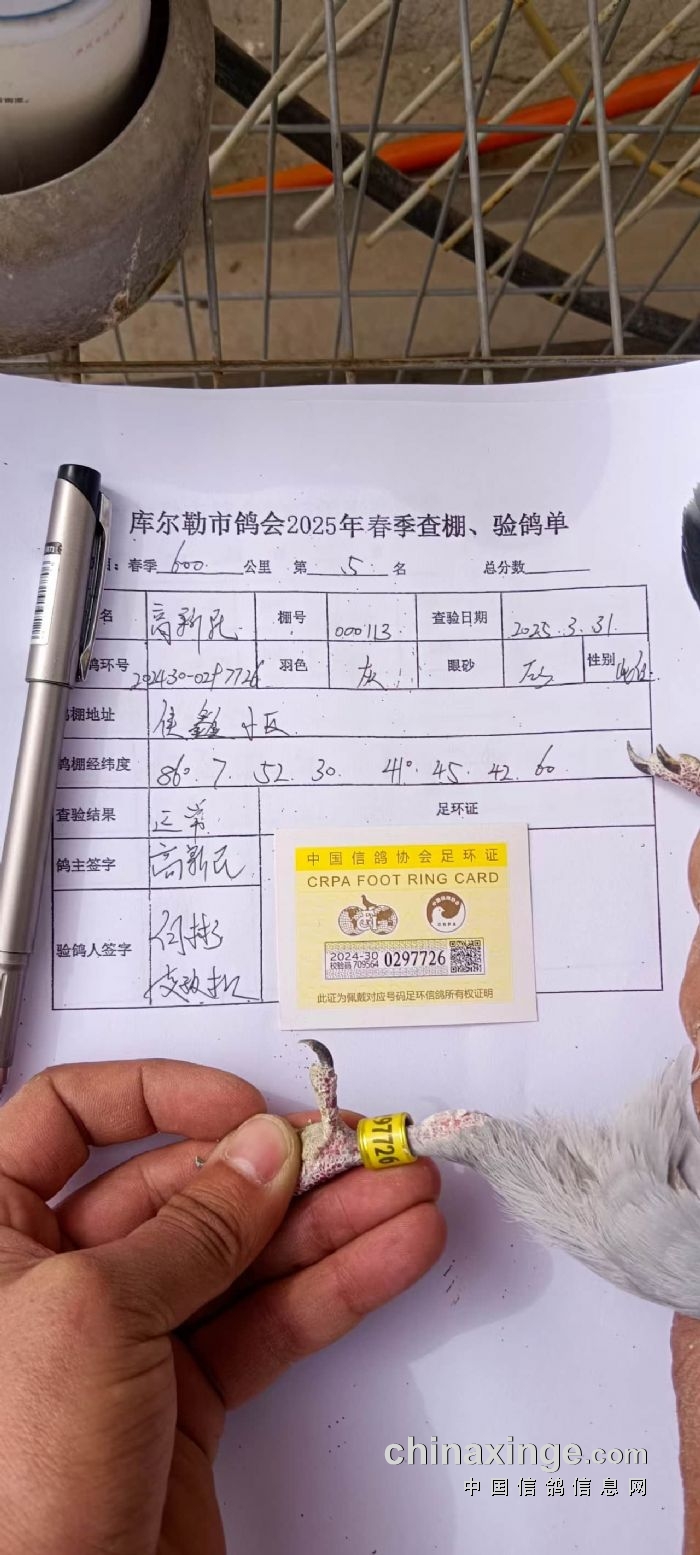 库尔勒市鸽会2025年春季查棚、验鸽单
目：春季 600 公里 第 5 名 总分数
名 高新民 棚号 000113 查验日期 2025.3.31.
鸽环号 202430-0297726 羽色 灰 眼砂 性别
鸽棚地址 佳鑫小区
鸽棚经纬度 86° 7. 52. 30. 41° 45. 42. 60
查验结果 正常 足环证
鸽主签字 高新民
验鸽人签字
中国信鸽协会足环证
CRPA FOOT RING CARD
2024-30
校验码 709564
0297726
此证为佩戴对应号码足环信鸽所有权证明
97726
chinaxinge.com
中国信鸽信息网